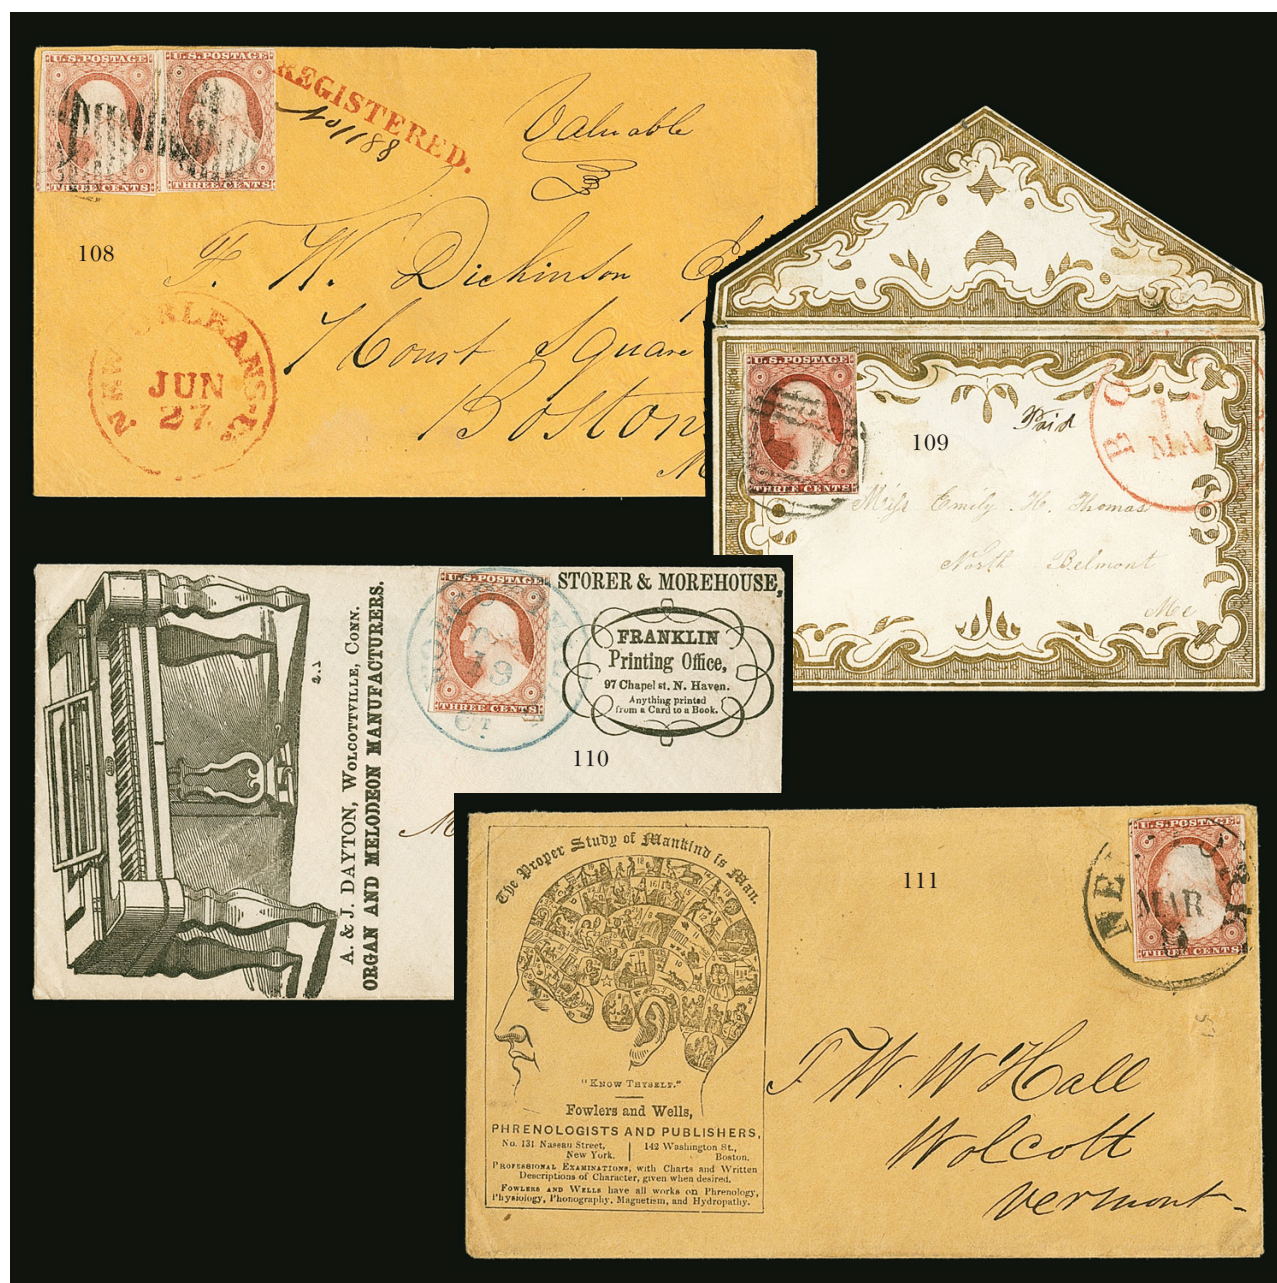 U.S.POSTAGE
U.S.POSTAGE
THREE CENTS
THREE CENTS
REGISTERED.
No 1188
Valuable
108
F. W. Dickinson
7 Court Square
Boston
NEW ORLEANS
JUN
27
U.S.POSTAGE
THREE CENTS
Paid
109
17
MAY
Miss Emily H. Thomas
North Belmont
Me
A. & J. DAYTON, WOLCOTTVILLE, CONN.
ORGAN AND MELODEON MANUFACTURERS.
U.S.POSTAGE
THREE CENTS
19
CT.
STORER & MOREHOUSE,
FRANKLIN
Printing Office,
97 Chapel st. N. Haven.
Anything printed
from a Card to a Book.
110
M
The Proper Study of Mankind is Man.
"KNOW THYSELF."
Fowlers and Wells,
PHRENOLOGISTS AND PUBLISHERS,
No. 131 Nassau Street, New York.
142 Washington St., Boston.
PROFESSIONAL EXAMINATIONS, with Charts and Written
Descriptions of Character, given when desired.
FOWLERS AND WELLS have all works on Phrenology,
Physiology, Phonography, Magnetism, and Hydropathy.
111
U.S.POSTAGE
THREE CENTS
NEW YORK
MAR
F. W. W Hall
Wolcott
Vermont